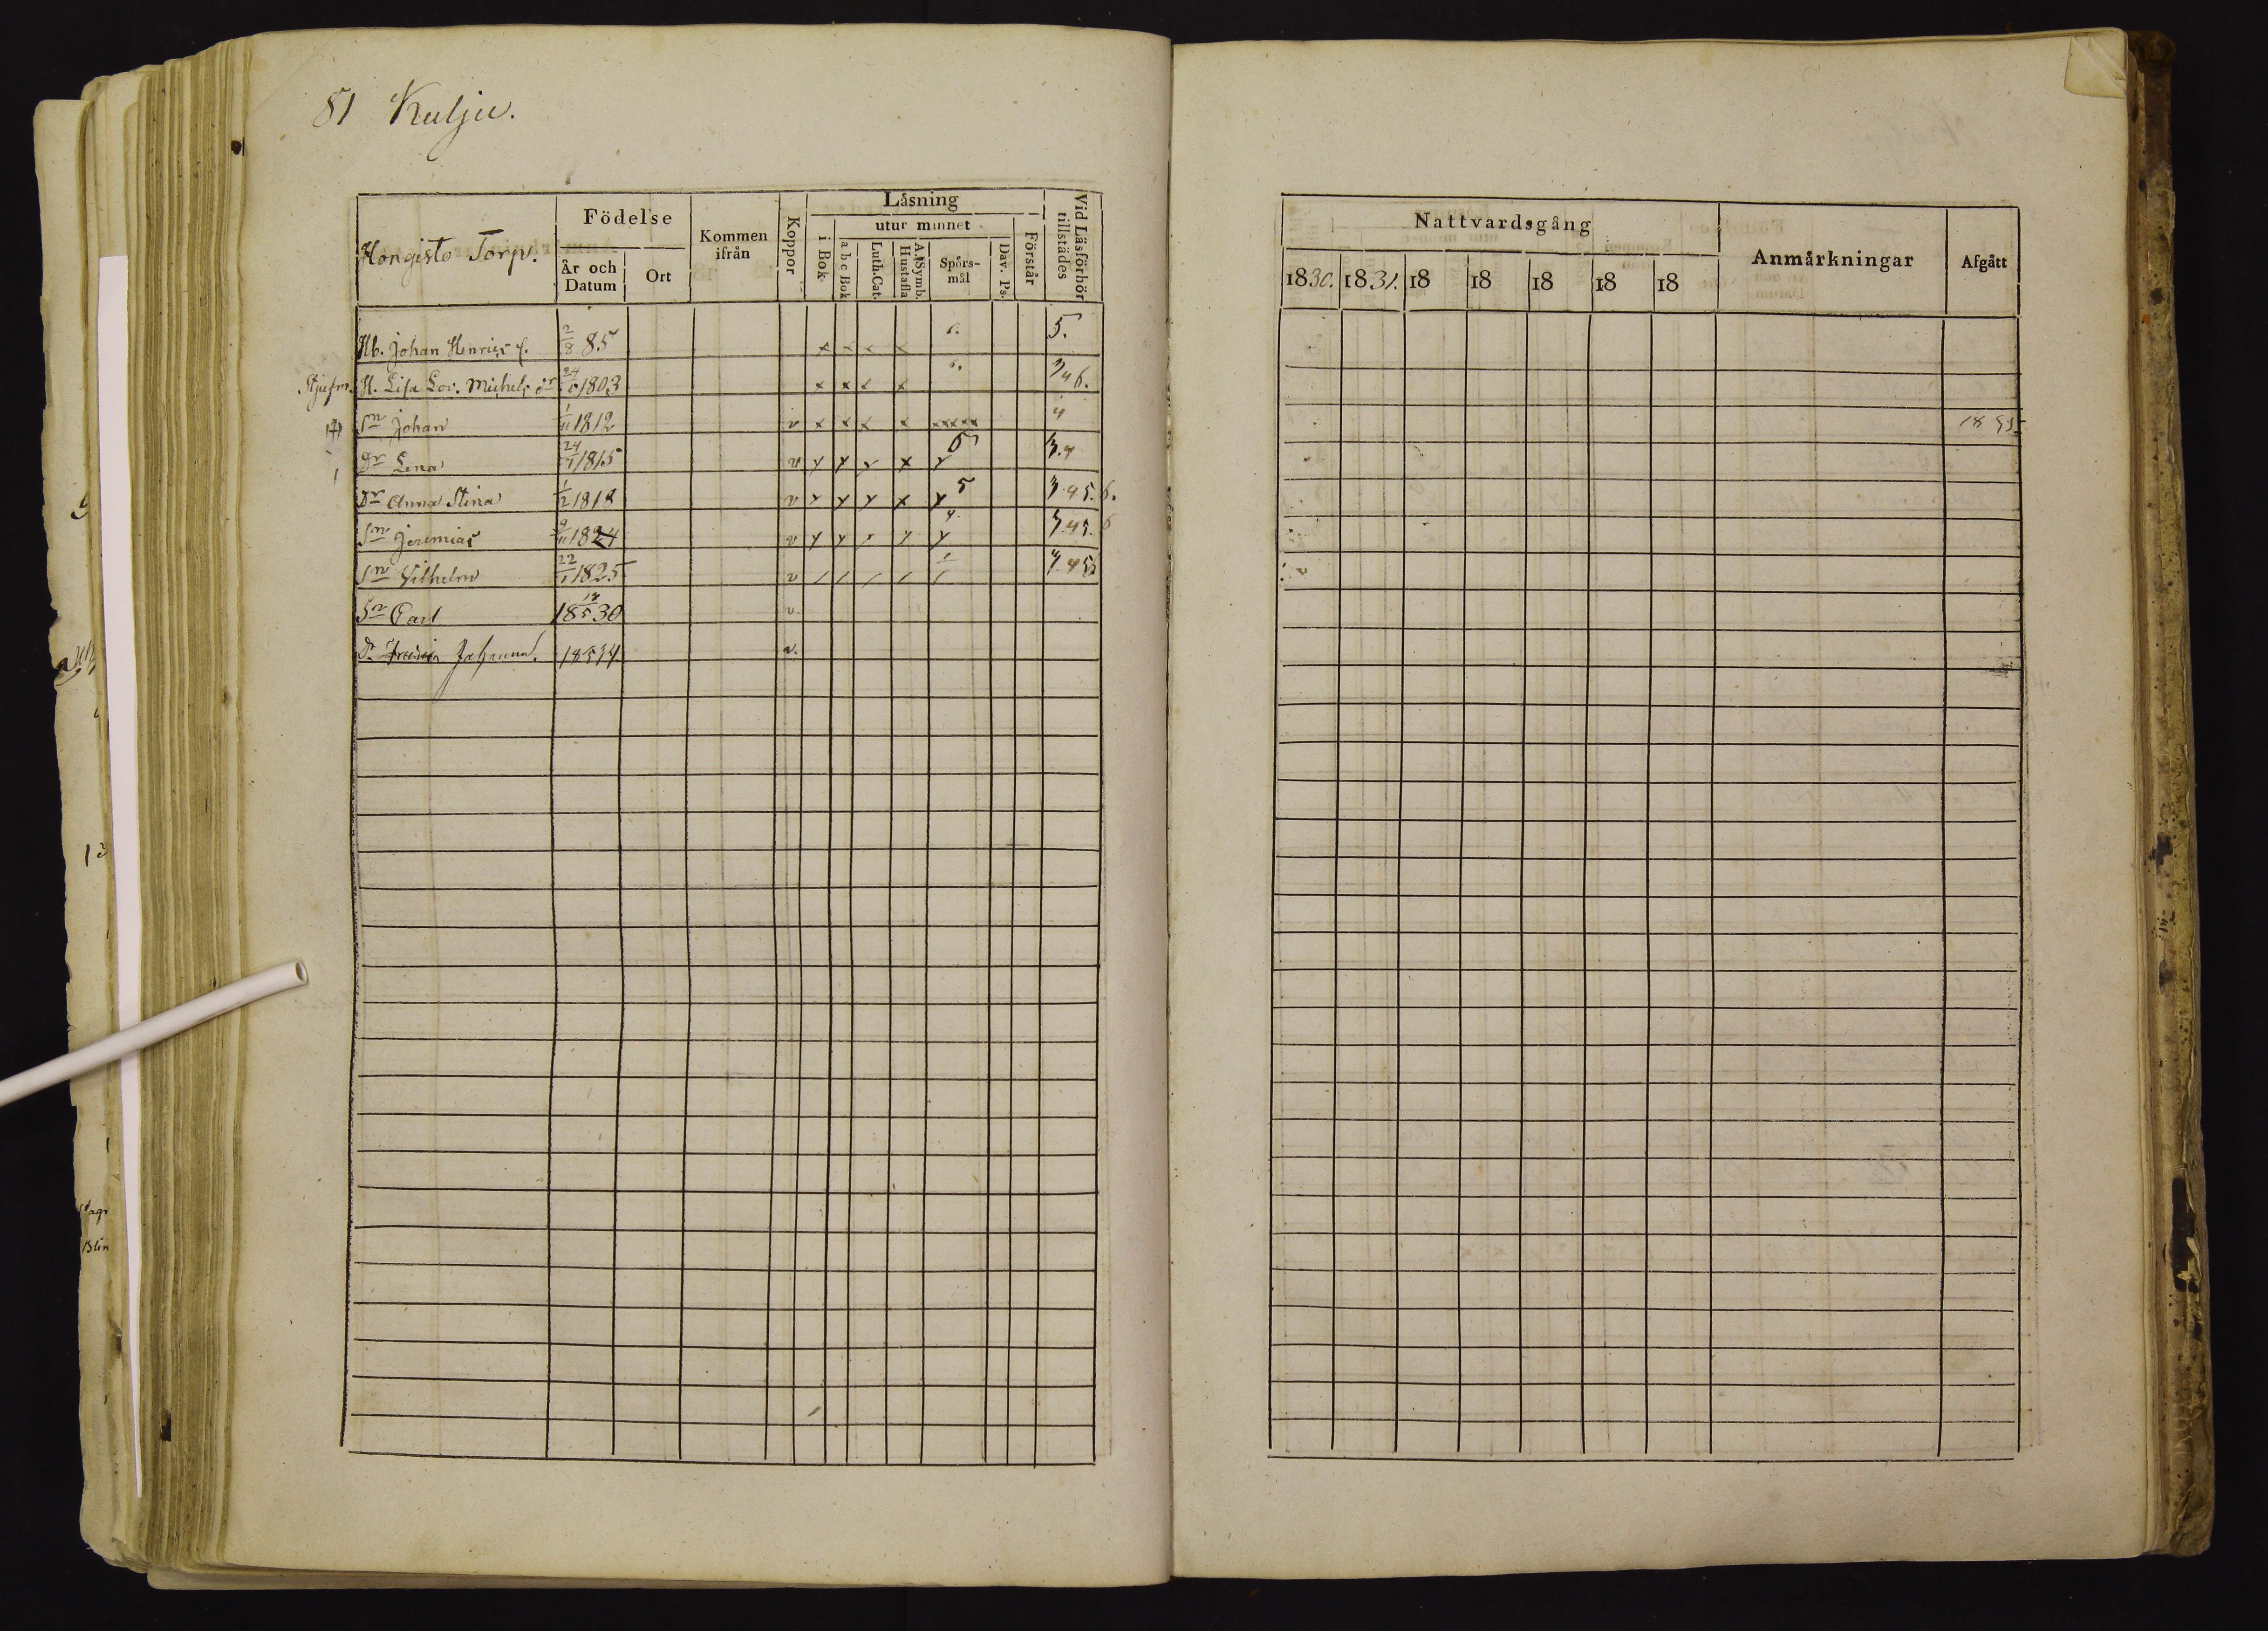 81 Kulju.
Hongisto Torp.
Födelse
År och Datum
Ort
Kommen ifrån
Koppor
Läsning
i Bok
utur minnet
a b c Bok
Luth. Cat.
A. Symb. Hustafla
Spörsmål
Dav. Ps.
Förstår
Vid Läsförhör tillstädes
Hb. Johan Henrics s. 2/8 85 x x x x 6. 5.
Stjufm. H. Lisa Lov. Michels dr 1803 x x x x 6. 3 4 6.
Sn Johan 1/11 1812 v x x x x xxxxx 4
Dr Lena 24/1 1815 v y y y x y 5 3. 4
Dr Anna Stina 1/2 1818 v y y y x y 5 3. 4 5. 6.
Sn Jeremias 9/11 1824 v y y y y y 4. 3. 4 5. 6
Sn Vilhelm 22/1 1825 v / / / / / 3. 4 5
Sn Carl 18 18/5 30 v
Dr Johanna. 18 34 v.
Nattvardsgång
1830. 1831. 18 18 18 18 18
Anmärkningar
Afgått
18 35